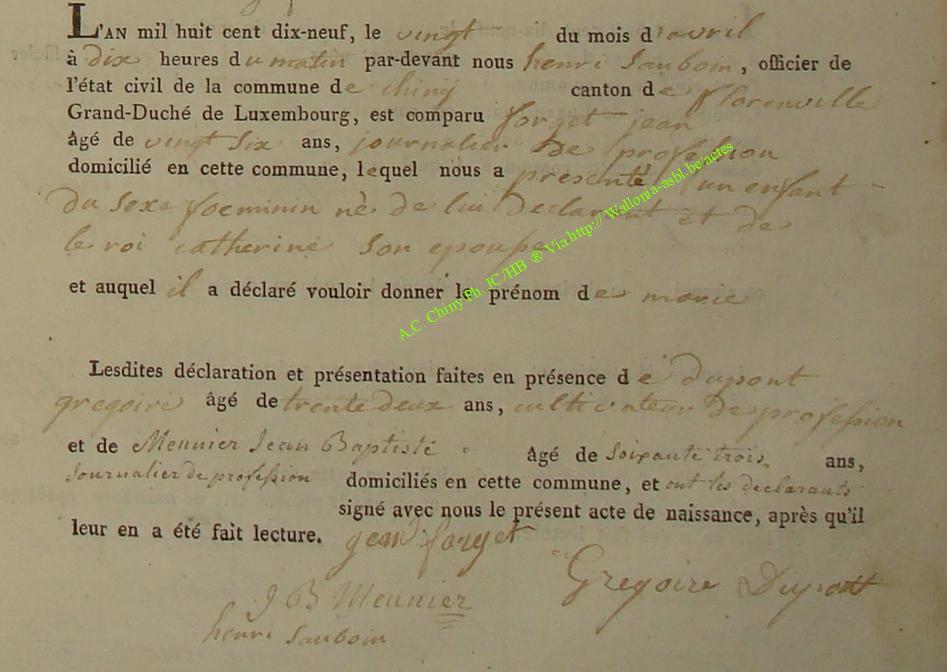 L'AN mil huit cent dix-neuf, le vingt du mois d'avril
à dix heures du matin par-devant nous henri Sauboin, officier de
l'état civil de la commune de chinÿ canton de florenville
Grand-Duché de Luxembourg, est comparu forget jean
âgé de vingt six ans, journalier de profession
domicilié en cette commune, lequel nous a présenté un enfant
du sexe foeminin né de lui declarant et de
le roi catherine son epouse
et auquel il a déclaré vouloir donner le prénom de marie
Lesdites déclaration et présentation faites en présence de dupont
gregoire âgé de trente deux ans, cultivateur de profession
et de Meunier Jean Baptiste âgé de Soixante trois ans,
Journalier de profession domiciliés en cette commune, et ont les declarants
signé avec nous le présent acte de naissance, après qu'il
leur en a été fait lecture. jean forget
Gregoire Dupont
J B Meunier
henri Sauboin
A.C. Chiny Ph. IC/HB ® Via http:// Wallonia-asbl.be/actes